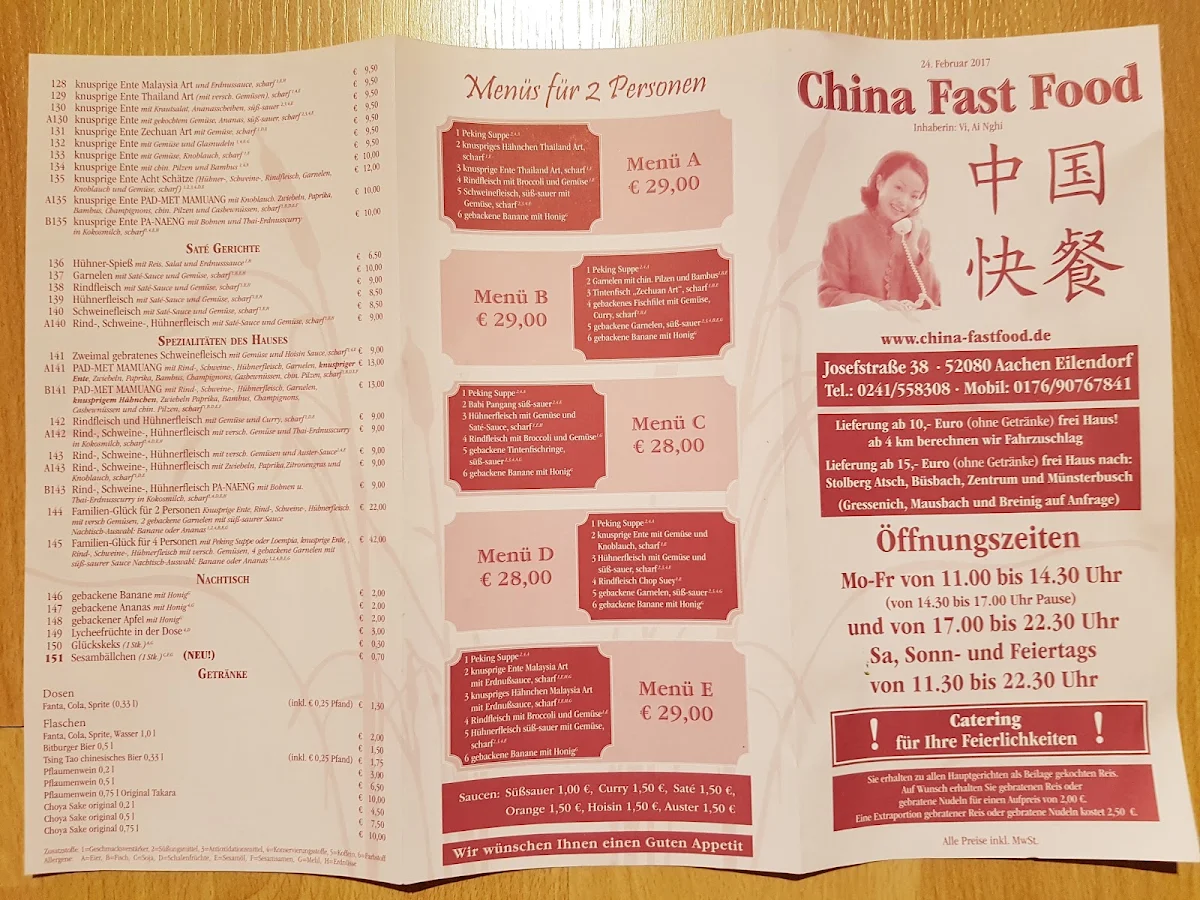 128 knusprige Ente Malaysia Art und Erdnusssauce, scharf € 9,50
129 knusprige Ente Thailand Art (mit versch. Gemüsen), scharf € 9,50
130 knusprige Ente mit Krautsalat, Ananasscheiben, süß-sauer € 9,50
A130 knusprige Ente mit gekochtem Gemüse, Ananas, süß-sauer, scharf € 9,50
131 knusprige Ente Zechuan Art mit Gemüse, scharf € 9,50
132 knusprige Ente mit Gemüse und Glasnudeln € 9,50
133 knusprige Ente mit Gemüse, Knoblauch, scharf € 9,50
134 knusprige Ente mit chin. Pilzen und Bambus € 10,00
135 knusprige Ente Acht Schätze (Hühner-, Schweine-, Rindfleisch, Garnelen, € 12,00
Knoblauch und Gemüse, scharf)
A135 knusprige Ente PAD-MET MAMUANG mit Knoblauch, Zwiebeln, Paprika, € 10,00
Bambus, Champignons, chin. Pilzen und Cashewnüssen, scharf
B135 knusprige Ente PA-NAENG mit Bohnen und Thai-Erdnusscurry € 10,00
in Kokosmilch, scharf
SATÉ GERICHTE
136 Hühner-Spieß mit Reis, Salat und Erdnusssauce € 6,50
137 Garnelen mit Saté-Sauce und Gemüse, scharf € 10,00
138 Rindfleisch mit Saté-Sauce und Gemüse, scharf € 9,00
139 Hühnerfleisch mit Saté-Sauce und Gemüse, scharf € 8,50
140 Schweinefleisch mit Saté-Sauce und Gemüse, scharf € 8,50
A140 Rind-, Schweine-, Hühnerfleisch mit Saté-Sauce und Gemüse, scharf € 9,00
SPEZIALITÄTEN DES HAUSES
141 Zweimal gebratenes Schweinefleisch mit Gemüse und Hoisin Sauce, scharf € 9,00
A141 PAD-MET MAMUANG mit Rind-, Schweine-, Hühnerfleisch, Garnelen, knuspriger € 13,00
Ente, Zwiebeln, Paprika, Bambus, Champignons, Cashewnüssen, chin. Pilzen, scharf
B141 PAD-MET MAMUANG mit Rind-, Schweine-, Hühnerfleisch, Garnelen, € 13,00
knusprigem Hähnchen, Zwiebeln Paprika, Bambus, Champignons,
Cashewnüssen und chin. Pilzen, scharf
142 Rindfleisch und Hühnerfleisch mit Gemüse und Curry, scharf € 9,00
A142 Rind-, Schweine-, Hühnerfleisch mit versch. Gemüse und Thai-Erdnusscurry € 9,00
in Kokosmilch, scharf
143 Rind-, Schweine-, Hühnerfleisch mit versch. Gemüsen und Auster-Sauce € 9,00
A143 Rind-, Schweine-, Hühnerfleisch mit Zwiebeln, Paprika, Zitronengras und € 9,00
Knoblauch, scharf
B143 Rind-, Schweine-, Hühnerfleisch PA-NAENG mit Bohnen u. € 9,00
Thai-Erdnusscurry in Kokosmilch, scharf
144 Familien-Glück für 2 Personen Knusprige Ente, Rind-, Schweine-, Hühnerfleisch € 22,00
mit versch Gemüsen, 2 gebackene Garnelen mit süß-saurer Sauce
Nachtisch-Auswahl: Banane oder Ananas
145 Familien-Glück für 4 Personen mit Peking Suppe oder Loempia, knusprige Ente, € 42,00
Rind-, Schweine-, Hühnerfleisch mit versch. Gemüsen, 4 gebackene Garnelen mit
süß-saurer Sauce Nachtisch-Auswahl: Banane oder Ananas
NACHTISCH
146 gebackene Banane mit Honig € 2,00
147 gebackene Ananas mit Honig € 2,00
148 gebackener Apfel mit Honig € 2,00
149 Lycheefrüchte in der Dose € 3,00
150 Glückskeks (1 Stk) € 0,30
151 Sesambällchen (1 Stk) (NEU!) € 0,70
GETRÄNKE
Dosen
Fanta, Cola, Sprite (0,33 l) (inkl. € 0,25 Pfand) € 1,30
Flaschen
Fanta, Cola, Sprite, Wasser 1,0 l € 2,00
Bitburger Bier 0,5 l € 1,50
Tsing Tao chinesisches Bier 0,33 l (inkl. € 0,25 Pfand) € 1,75
Pflaumenwein 0,2 l € 3,00
Pflaumenwein 0,5 l € 6,50
Pflaumenwein 0,75 l Original Takara € 10,00
Choya Sake original 0,2 l € 4,50
Choya Sake original 0,5 l € 7,50
Choya Sake original 0,75 l € 10,00
Zusatzstoffe: 1=Geschmacksverstärker, 2=Süßungsmittel, 3=Antioxidationsmittel, 4=Konservierungsstoffe, 5=Koffein, 6=Farbstoff
Allergene: A=Eier, B=Fisch, C=Soja, D=Schalenfrüchte, E=Sesamöl, F=Sesamsamen, G=Mehl, H=Erdnüsse
Menüs für 2 Personen
1 Peking Suppe
2 knuspriges Hähnchen Thailand Art,
scharf
3 knusprige Ente Thailand Art, scharf
4 Rindfleisch mit Broccoli und Gemüse
5 Schweinefleisch, süß-sauer mit
Gemüse, scharf
6 gebackene Banane mit Honig
Menü A
€ 29,00
Menü B
€ 29,00
1 Peking Suppe
2 Garnelen mit chin. Pilzen und Bambus
3 Tintenfisch „Zechuan Art“, scharf
4 gebackenes Fischfilet mit Gemüse,
Curry, scharf
5 gebackene Garnelen, süß-sauer
6 gebackene Banane mit Honig
1 Peking Suppe
2 Babi Pangang süß-sauer
3 Hühnerfleisch mit Gemüse und
Saté-Sauce, scharf
4 Rindfleisch mit Broccoli und Gemüse
5 gebackene Tintenfischringe,
süß-sauer
6 gebackene Banane mit Honig
Menü C
€ 28,00
Menü D
€ 28,00
1 Peking Suppe
2 knusprige Ente mit Gemüse und
Knoblauch, scharf
3 Hühnerfleisch mit Gemüse und
süß-sauer, scharf
4 Rindfleisch Chop Suey
5 gebackene Garnelen, süß-sauer
6 gebackene Banane mit Honig
1 Peking Suppe
2 knusprige Ente Malaysia Art
mit Erdnußsauce, scharf
3 knuspriges Hähnchen Malaysia Art
mit Erdnußsauce, scharf
4 Rindfleisch mit Broccoli und Gemüse
5 Hühnerfleisch süß-sauer mit Gemüse,
scharf
6 gebackene Banane mit Honig
Menü E
€ 29,00
Saucen: Süßsauer 1,00 €, Curry 1,50 €, Saté 1,50 €,
Orange 1,50 €, Hoisin 1,50 €, Auster 1,50 €
Wir wünschen Ihnen einen Guten Appetit
24. Februar 2017
China Fast Food
Inhaberin: Vi, Ai Nghi
中国
快餐
www.china-fastfood.de
Josefstraße 38 · 52080 Aachen Eilendorf
Tel.: 0241/558308 · Mobil: 0176/90767841
Lieferung ab 10,- Euro (ohne Getränke) frei Haus!
ab 4 km berechnen wir Fahrzuschlag
Lieferung ab 15,- Euro (ohne Getränke) frei Haus nach:
Stolberg Atsch, Büsbach, Zentrum und Münsterbusch
(Gressenich, Mausbach und Breinig auf Anfrage)
Öffnungszeiten
Mo-Fr von 11.00 bis 14.30 Uhr
(von 14.30 bis 17.00 Uhr Pause)
und von 17.00 bis 22.30 Uhr
Sa, Sonn- und Feiertags
von 11.30 bis 22.30 Uhr
! Catering !
für Ihre Feierlichkeiten
Sie erhalten zu allen Hauptgerichten als Beilage gekochten Reis.
Auf Wunsch erhalten Sie gebratenen Reis oder
gebratene Nudeln für einen Aufpreis von 2,00 €.
Eine Extraportion gebratener Reis oder gebratene Nudeln kostet 2,50 €.
Alle Preise inkl. MwSt.